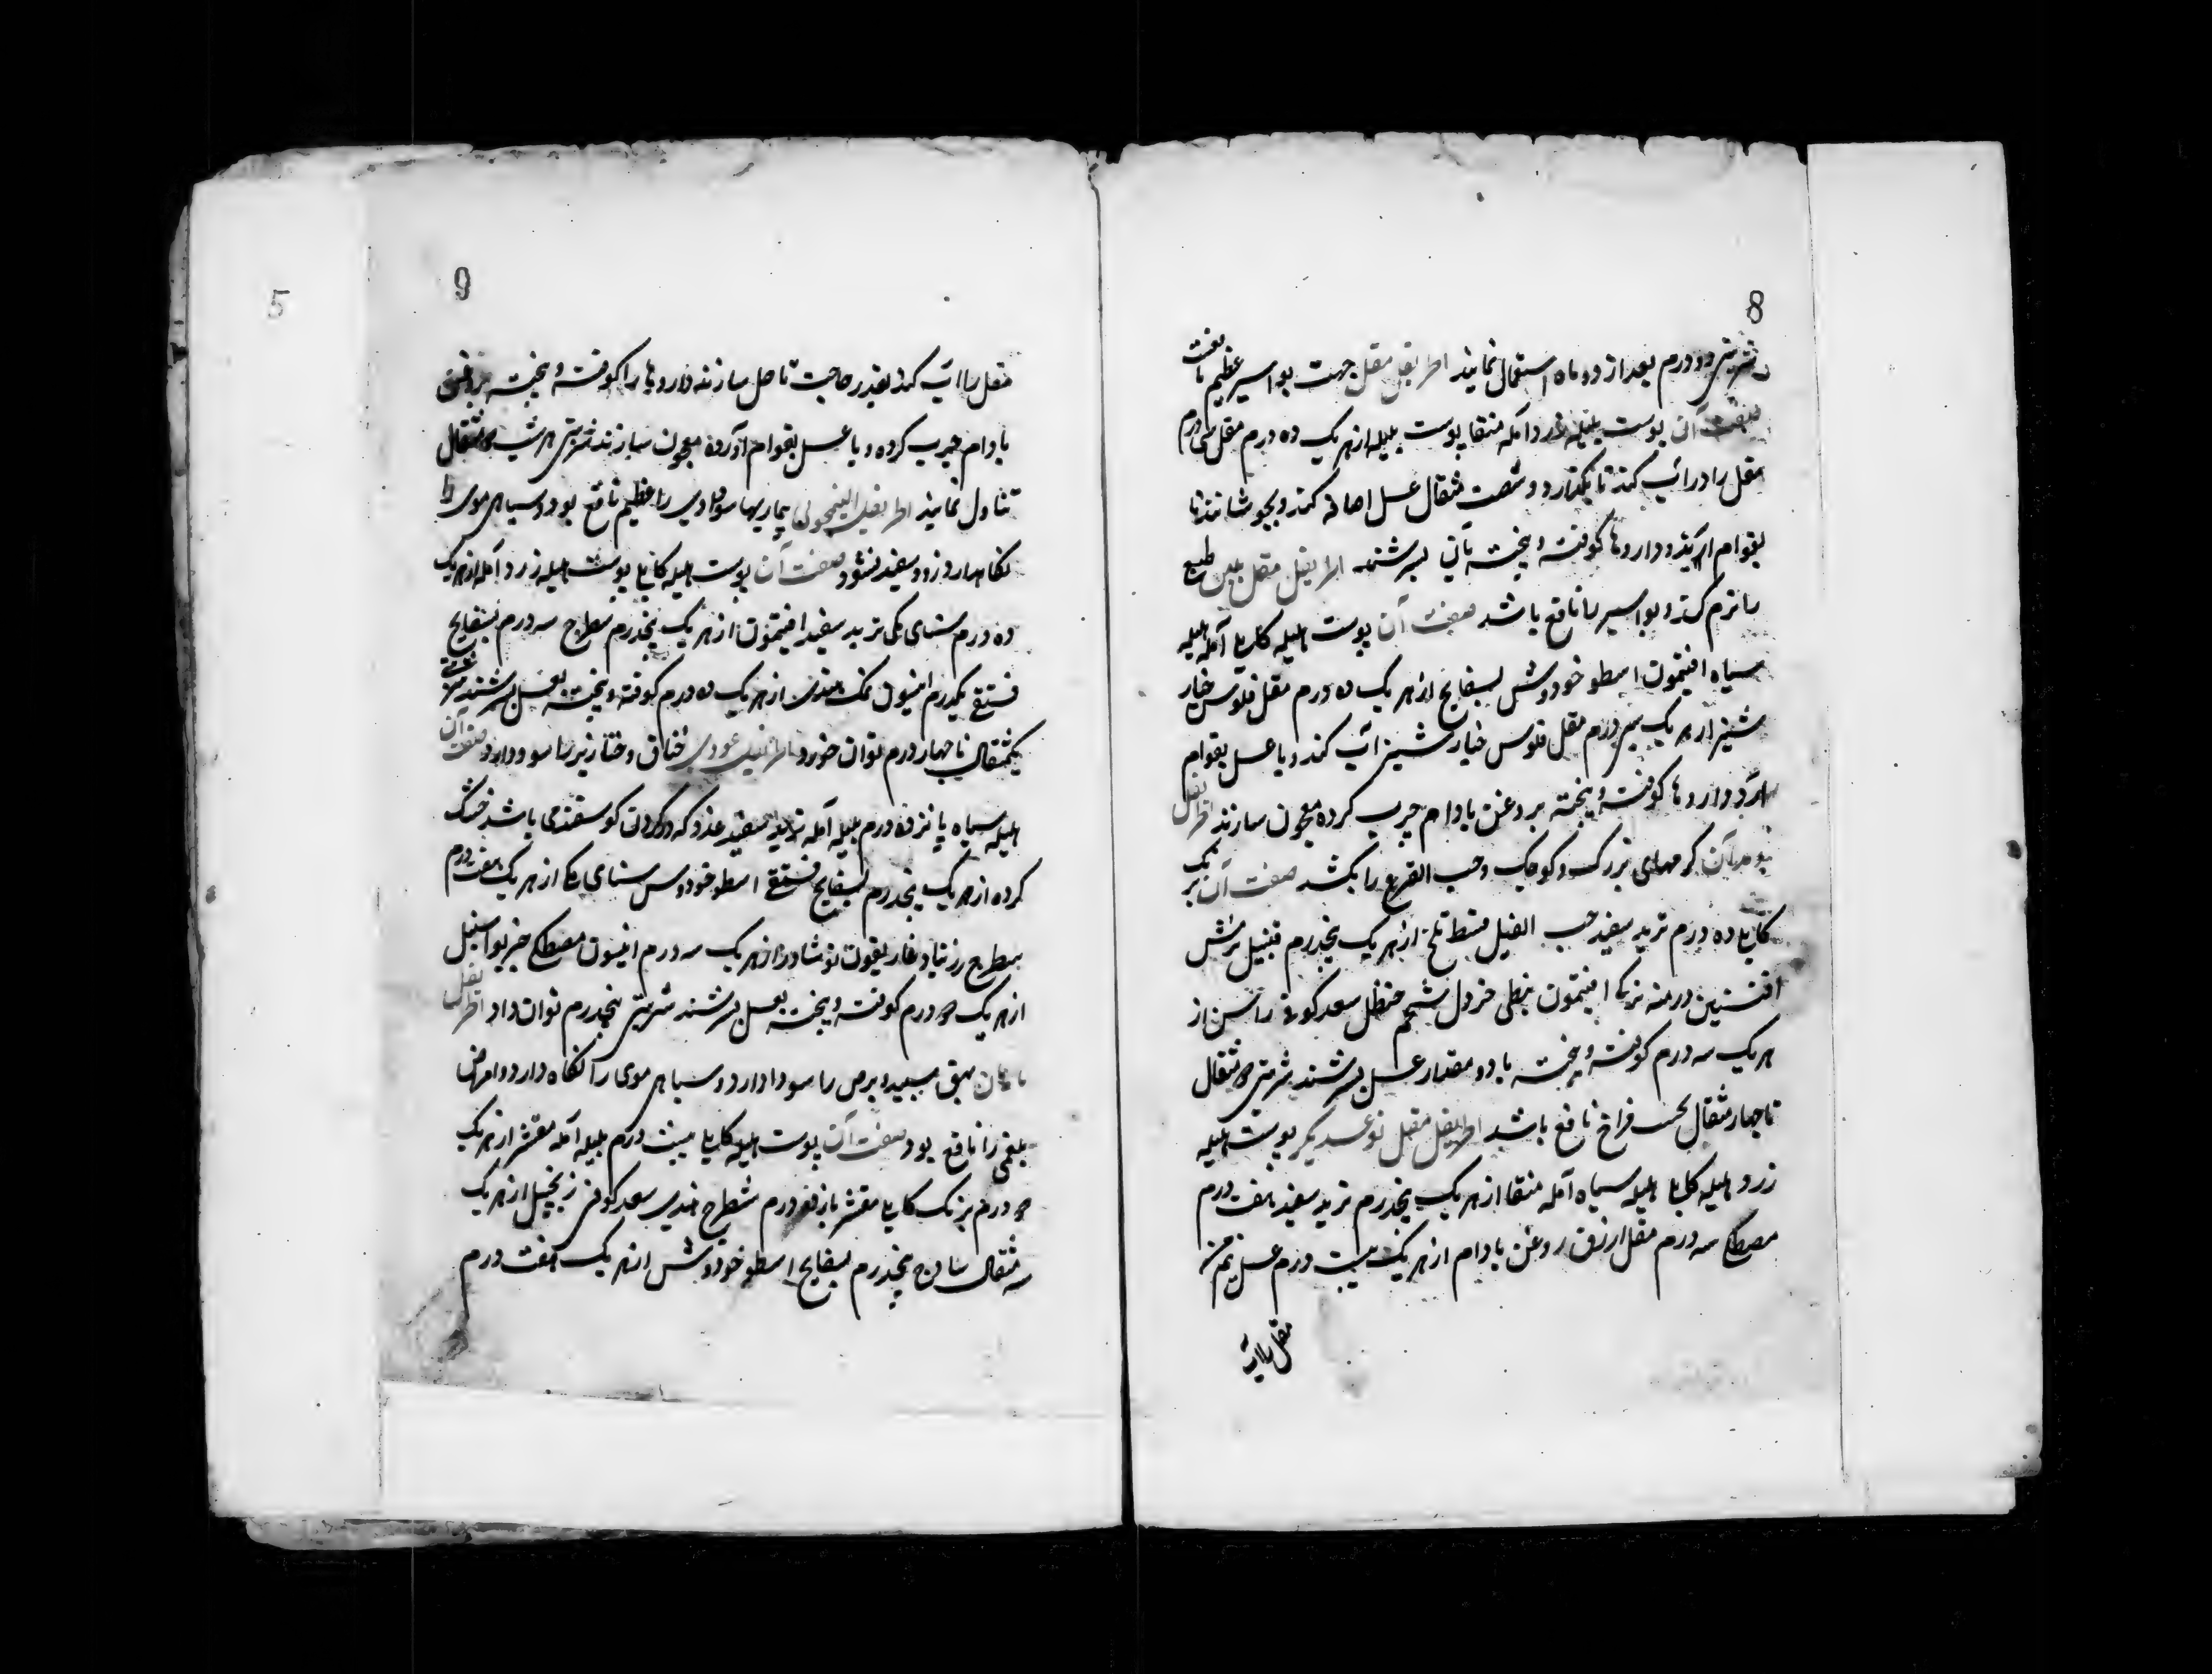 8
شربتی دو درم بعد از دو ماه استعمال نمایند اطریفل مقل جهت بواسیر عظیم نافعست
صفت آن پوست هلیله زرد آمله منقا پوست بلیله از هر یک ده درم مقل سی درم
مقل را در آب کنند تا بگدازد و شصت مثقال عسل اضافه کنند و بجوشانند تا
بقوام آید و داروها کوفته و بیخته بآن بسرشند اطریفل مقل ملین طبع
را نرم کند و بواسیر را نافع باشد صفت آن پوست هلیله کابلی آمله هلیله
سیاه افتیمون اسطوخودوس بسفایج از هر یک ده درم مقل فلوس خیار
شنبر از هر یک سی درم مقل فلوس خیار شنبر آب کنند و با عسل بقوام
آرد و داروها کوفته و بیخته بروغن بادام چرب کرده معجون سازند اطریفل
کرمهای بزرک و کوچک و حب القرع را بکشد صفت آن برنک
کابلی ده درم تربد سفید حب النیل قسط تلخ از هر یک پنجدرم قنبیل ترمس
افسنتین درمنه ترکی افتیمون نبطی خردل شحم حنظل سعد کوفی راسن از
هر یک سه درم کوفته و بیخته با دو مقدار عسل بسرشند شربتی دو مثقال
تا چهار مثقال بحسب مزاج نافع باشد اطریفل مقل نوعدیکر پوست هلیله
زرد هلیله کابلی هلیله سیاه آمله منقا از هر یک پنجدرم تربد سفید هفت درم
مصطکی سه درم مقل ازرق روغن بادام از هر یک بیست درم عسل نیم من
مقل را آب
9
5
مقل را آب کند بقدر حاجت تا حل سازند داروها را کوفته و بیخته بروغن
بادام چرب کرده و با عسل بقوام آورده معجون سازند شربتی هر شب دو مثقال
تناول نمایند اطریفل افتیمونی بیماریها سوداوی را عظیم نافع بود و سیاهی موی را
نکاهدارد و زود سفید نشود صفت آن پوست هلیله کابلی پوست هلیله زرد آمله از هر یک
ده درم سنای مکی تربد سفید افتیمون از هر یک پنجدرم شطرج سه درم بسفایج
فستقی یکدرم انیسون نمک هندی از هر یک ده درم کوفته و بیخته بعسل بسرشند شربتی
یکمثقال تا چهار درم توان خورد اطریفل غددی خناق و خنازیر را سود دارد صفت آن
هلیله سیاه پانزده درم بلیله آمله تربد سفید غدد که در کردن کوسفندی باشد خشک
کرده از هر یک پنجدرم بسفایج فستقی اسطوخودوس سنای مکی از هر یک هفت درم
شطرج زرنباد غاریقون نوشادر از هر یک سه درم انیسون مصطکی جزبوا سنبل
از هر یک دو درم کوفته و بیخته بعسل بسرشند شربتی پنجدرم توان داد اطریفل
بهق سپید و برص را سود دارد و سیاهی موی را نکاه دارد و امراض
بلغمی را نافع بود صفت آن پوست هلیله کابلی بیست درم بلیله آمله مقشر از هر یک
ده درم برنک کابلی مقشر درم شطرج هندی سعد کوفی زنجبیل از هر یک
سه مثقال ساذج پنجدرم بسفایج اسطوخودوس از هر یک هفت درم